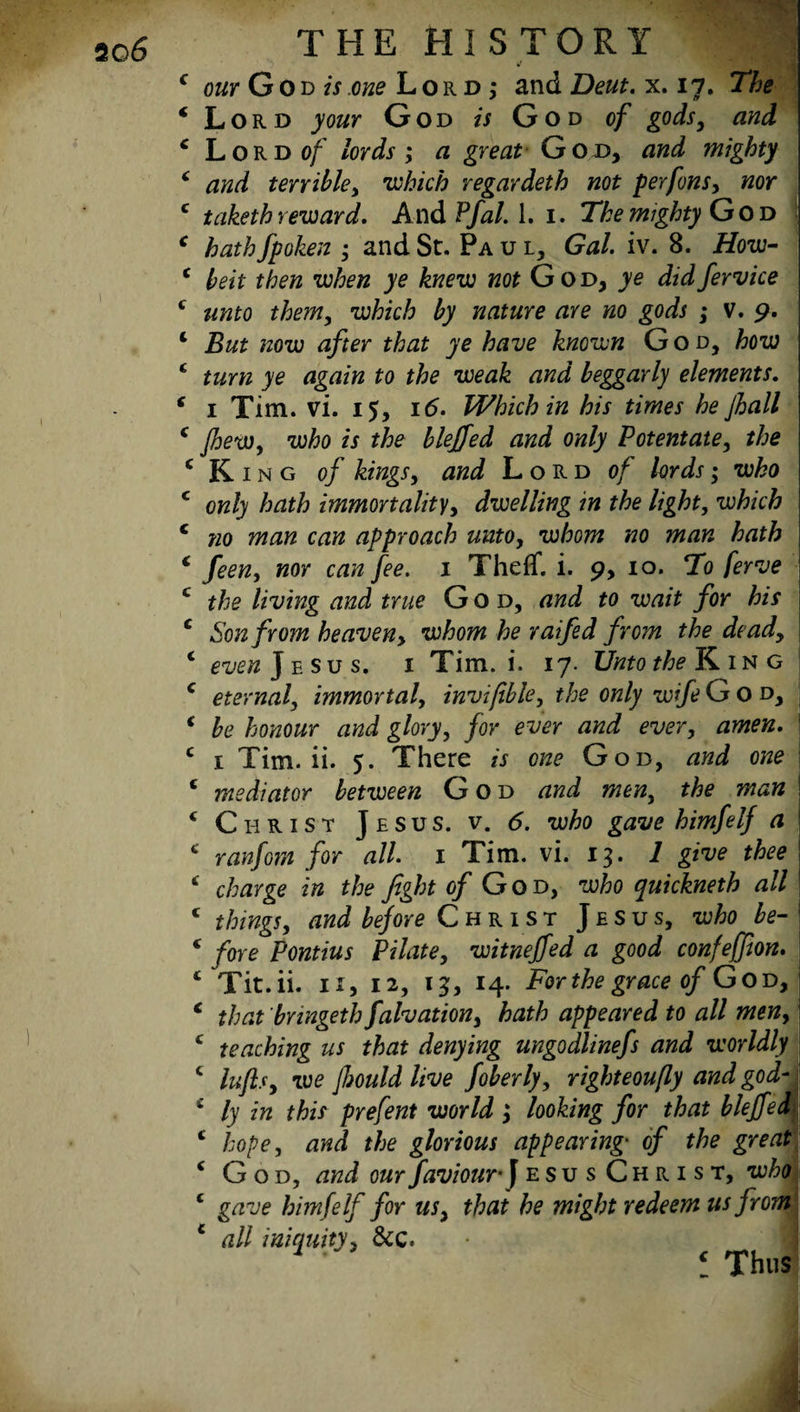 206 THE HISTORY
‘ our GOD is one LORD; and Deut. x. 17. The
‘ LORD your GOD is GOD of gods, and
‘ LORD of lords; a great GOD, and mighty
‘ and terrible, which regardeth not perſons, nor
‘ taketh reward. And Pſal. l. 1. The mighty GOD
‘ hath ſpoken; and St. PAUL, Gal. iv. 8. How-
‘ beit then when ye knew not GOD, ye did ſervice
‘ unto them, which by nature are no gods; v. 9.
‘ But now after that ye have known GOD, how
‘ turn ye again to the weak and beggarly elements.
‘ 1 Tim. vi. 15, 16. Which in his times he ſhall
‘ ſhew, who is the bleſſed and only Potentate, the
‘ KING of kings, and LORD of lords; who
‘ only hath immortality, dwelling in the light, which
‘ no man can approach unto, whom no man hath
‘ ſeen, nor can ſee. 1 Theſſ. i. 9, 10. To ſerve
‘ the living and true GOD, and to wait for his
‘ Son from heaven, whom he raiſed from the dead,
‘ even JESUS. 1 Tim. i. 17. Unto the KING
‘ eternal, immortal, inviſible, the only wiſe GOD,
‘ be honour and glory, for ever and ever, amen.
‘ 1 Tim. ii. 5. There is one GOD, and one
‘ mediator between GOD and men, the man
‘ CHRIST JESUS. v. 6. who gave himſelf a
‘ ranſom for all. 1 Tim. vi. 13. I give thee
‘ charge in the ſight of GOD, who quickneth all
‘ things, and before CHRIST JESUS, who be-
‘ fore Pontius Pilate, witneſſed a good confeſſion.
‘ Tit. ii. 11, 12, 13, 14. For the grace of GOD,
‘ that bringeth ſalvation, hath appeared to all men,
‘ teaching us that denying ungodlineſs and worldly
‘ luſts, we ſhould live ſoberly, righteouſly and god-
‘ ly in this preſent world; looking for that bleſſed
‘ hope, and the glorious appearing of the great
‘ GOD, and our ſaviour JESUS CHRIST, who
‘ gave himſelf for us, that he might redeem us from
‘ all iniquity, &c.
‘ Thus